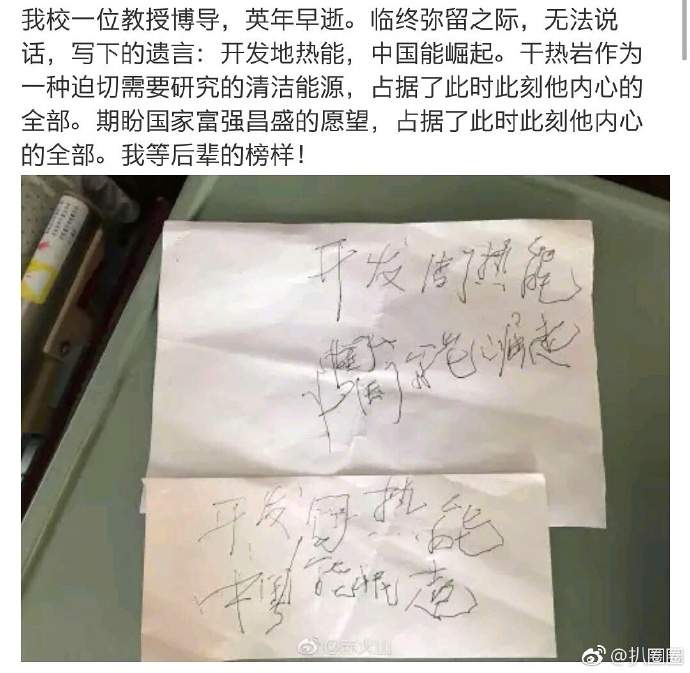 我校一位教授博导，英年早逝。临终弥留之际，无法说
话，写下的遗言：开发地热能，中国能崛起。干热岩作为
一种迫切需要研究的清洁能源，占据了此时此刻他内心的
全部。期盼国家富强昌盛的愿望，占据了此时此刻他内心
的全部。我等后辈的榜样！
开发 热能
崛起
开发 热能
中国能崛起
@扒圈圈